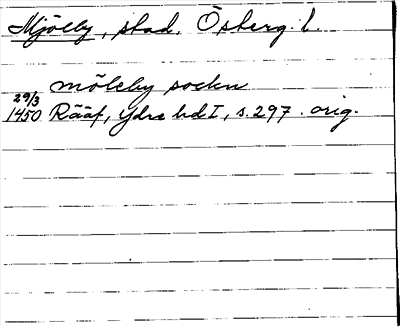 Mjölby, stad, Österg. l.
möleby socken
29/3
1450 Rääf, Ydre hd I, s. 297. orig.